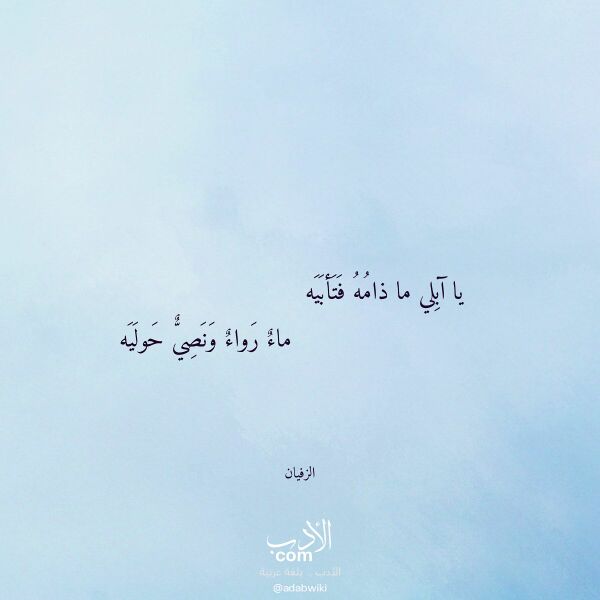 يا آبِلِي ما ذامُهُ فَتَأبَيَه
ماءٌ رَواءٌ وَنَصِيٌّ حَولَيَه
الزفيان
الأدب
com
الأدب .. بلغة عربية
@adabwiki